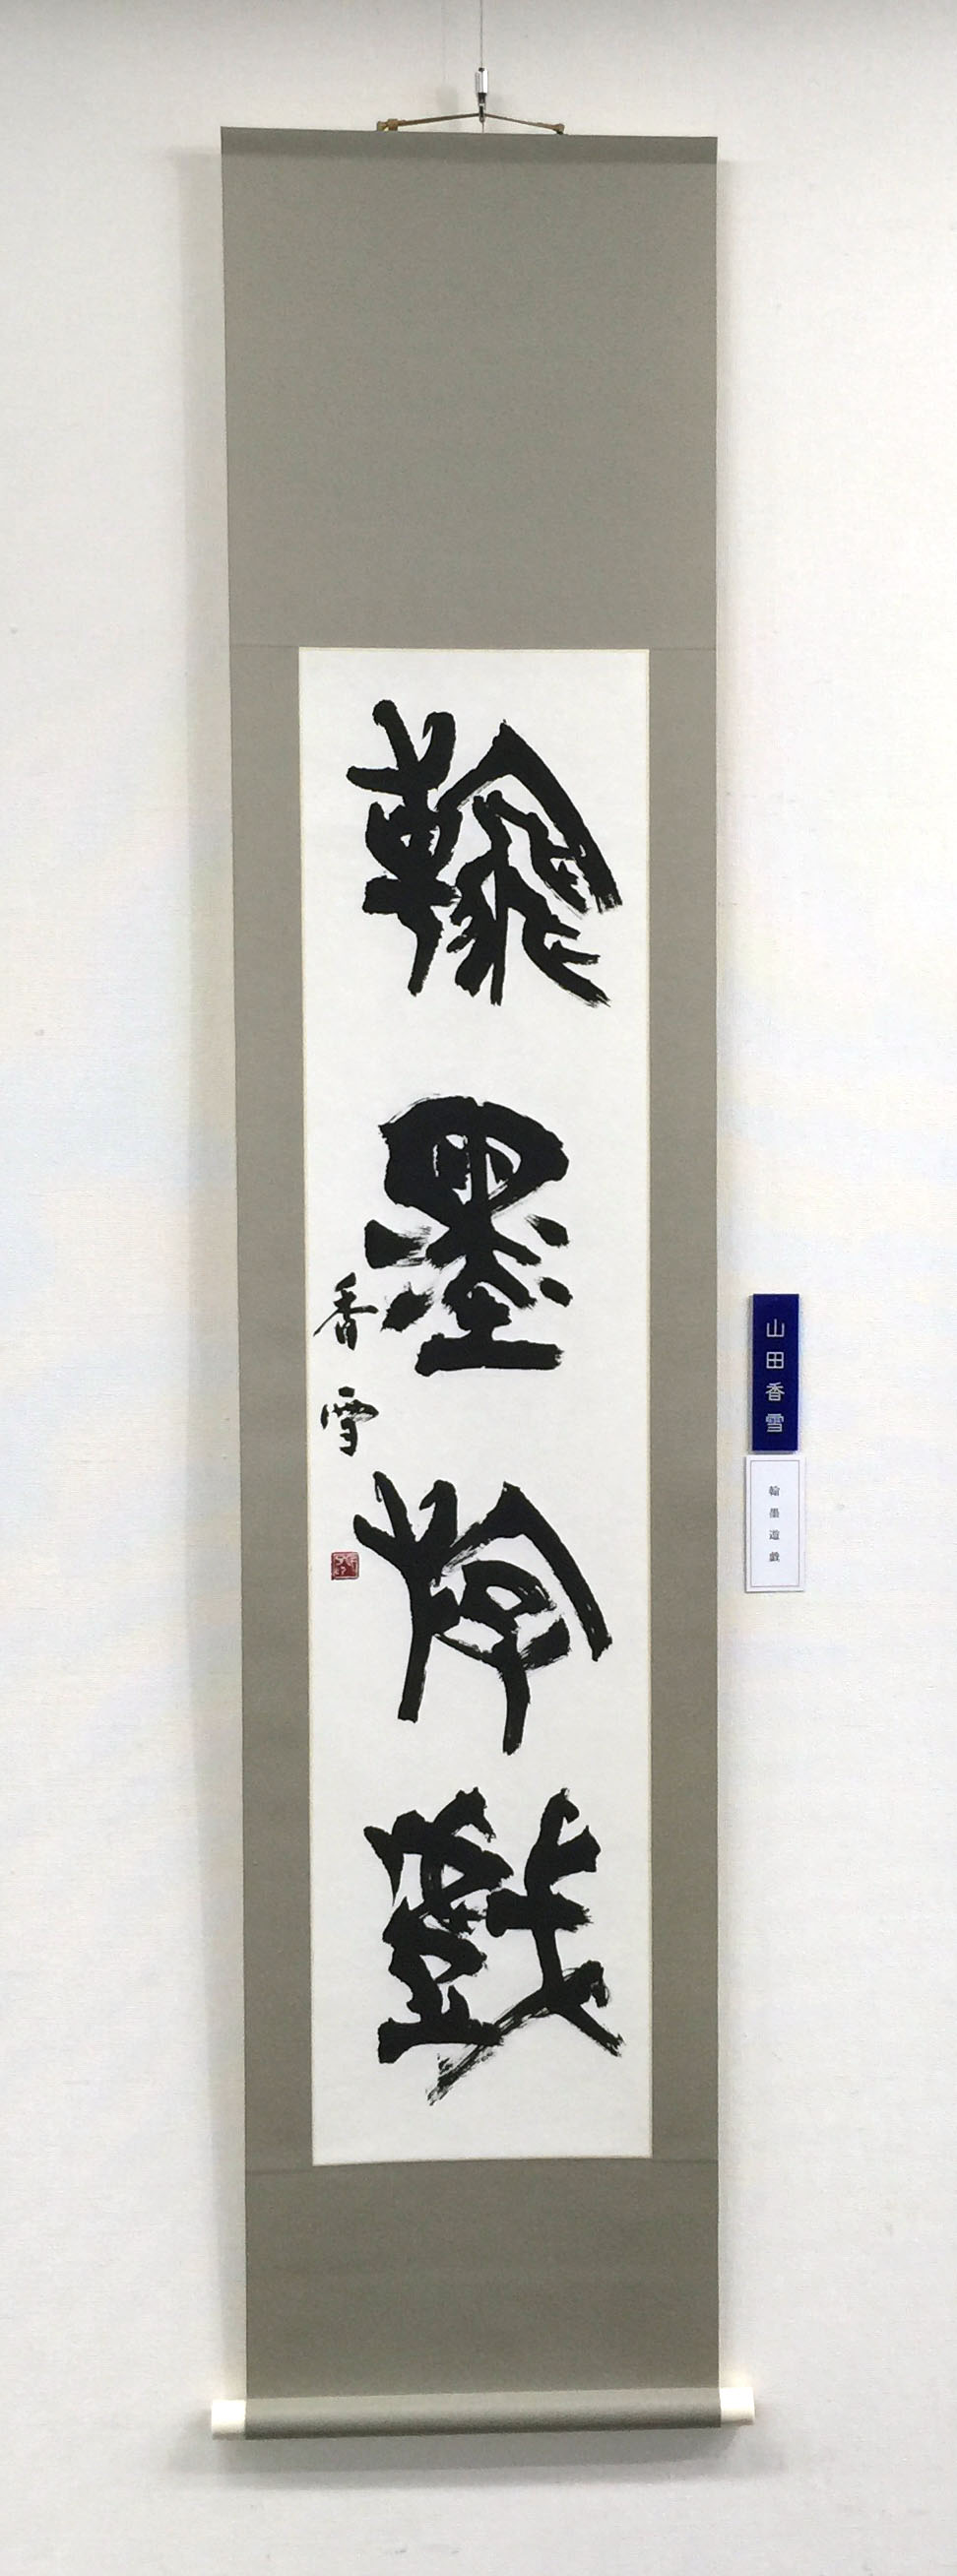 翰墨遊戯
香雪
山田香雪
翰墨遊戯